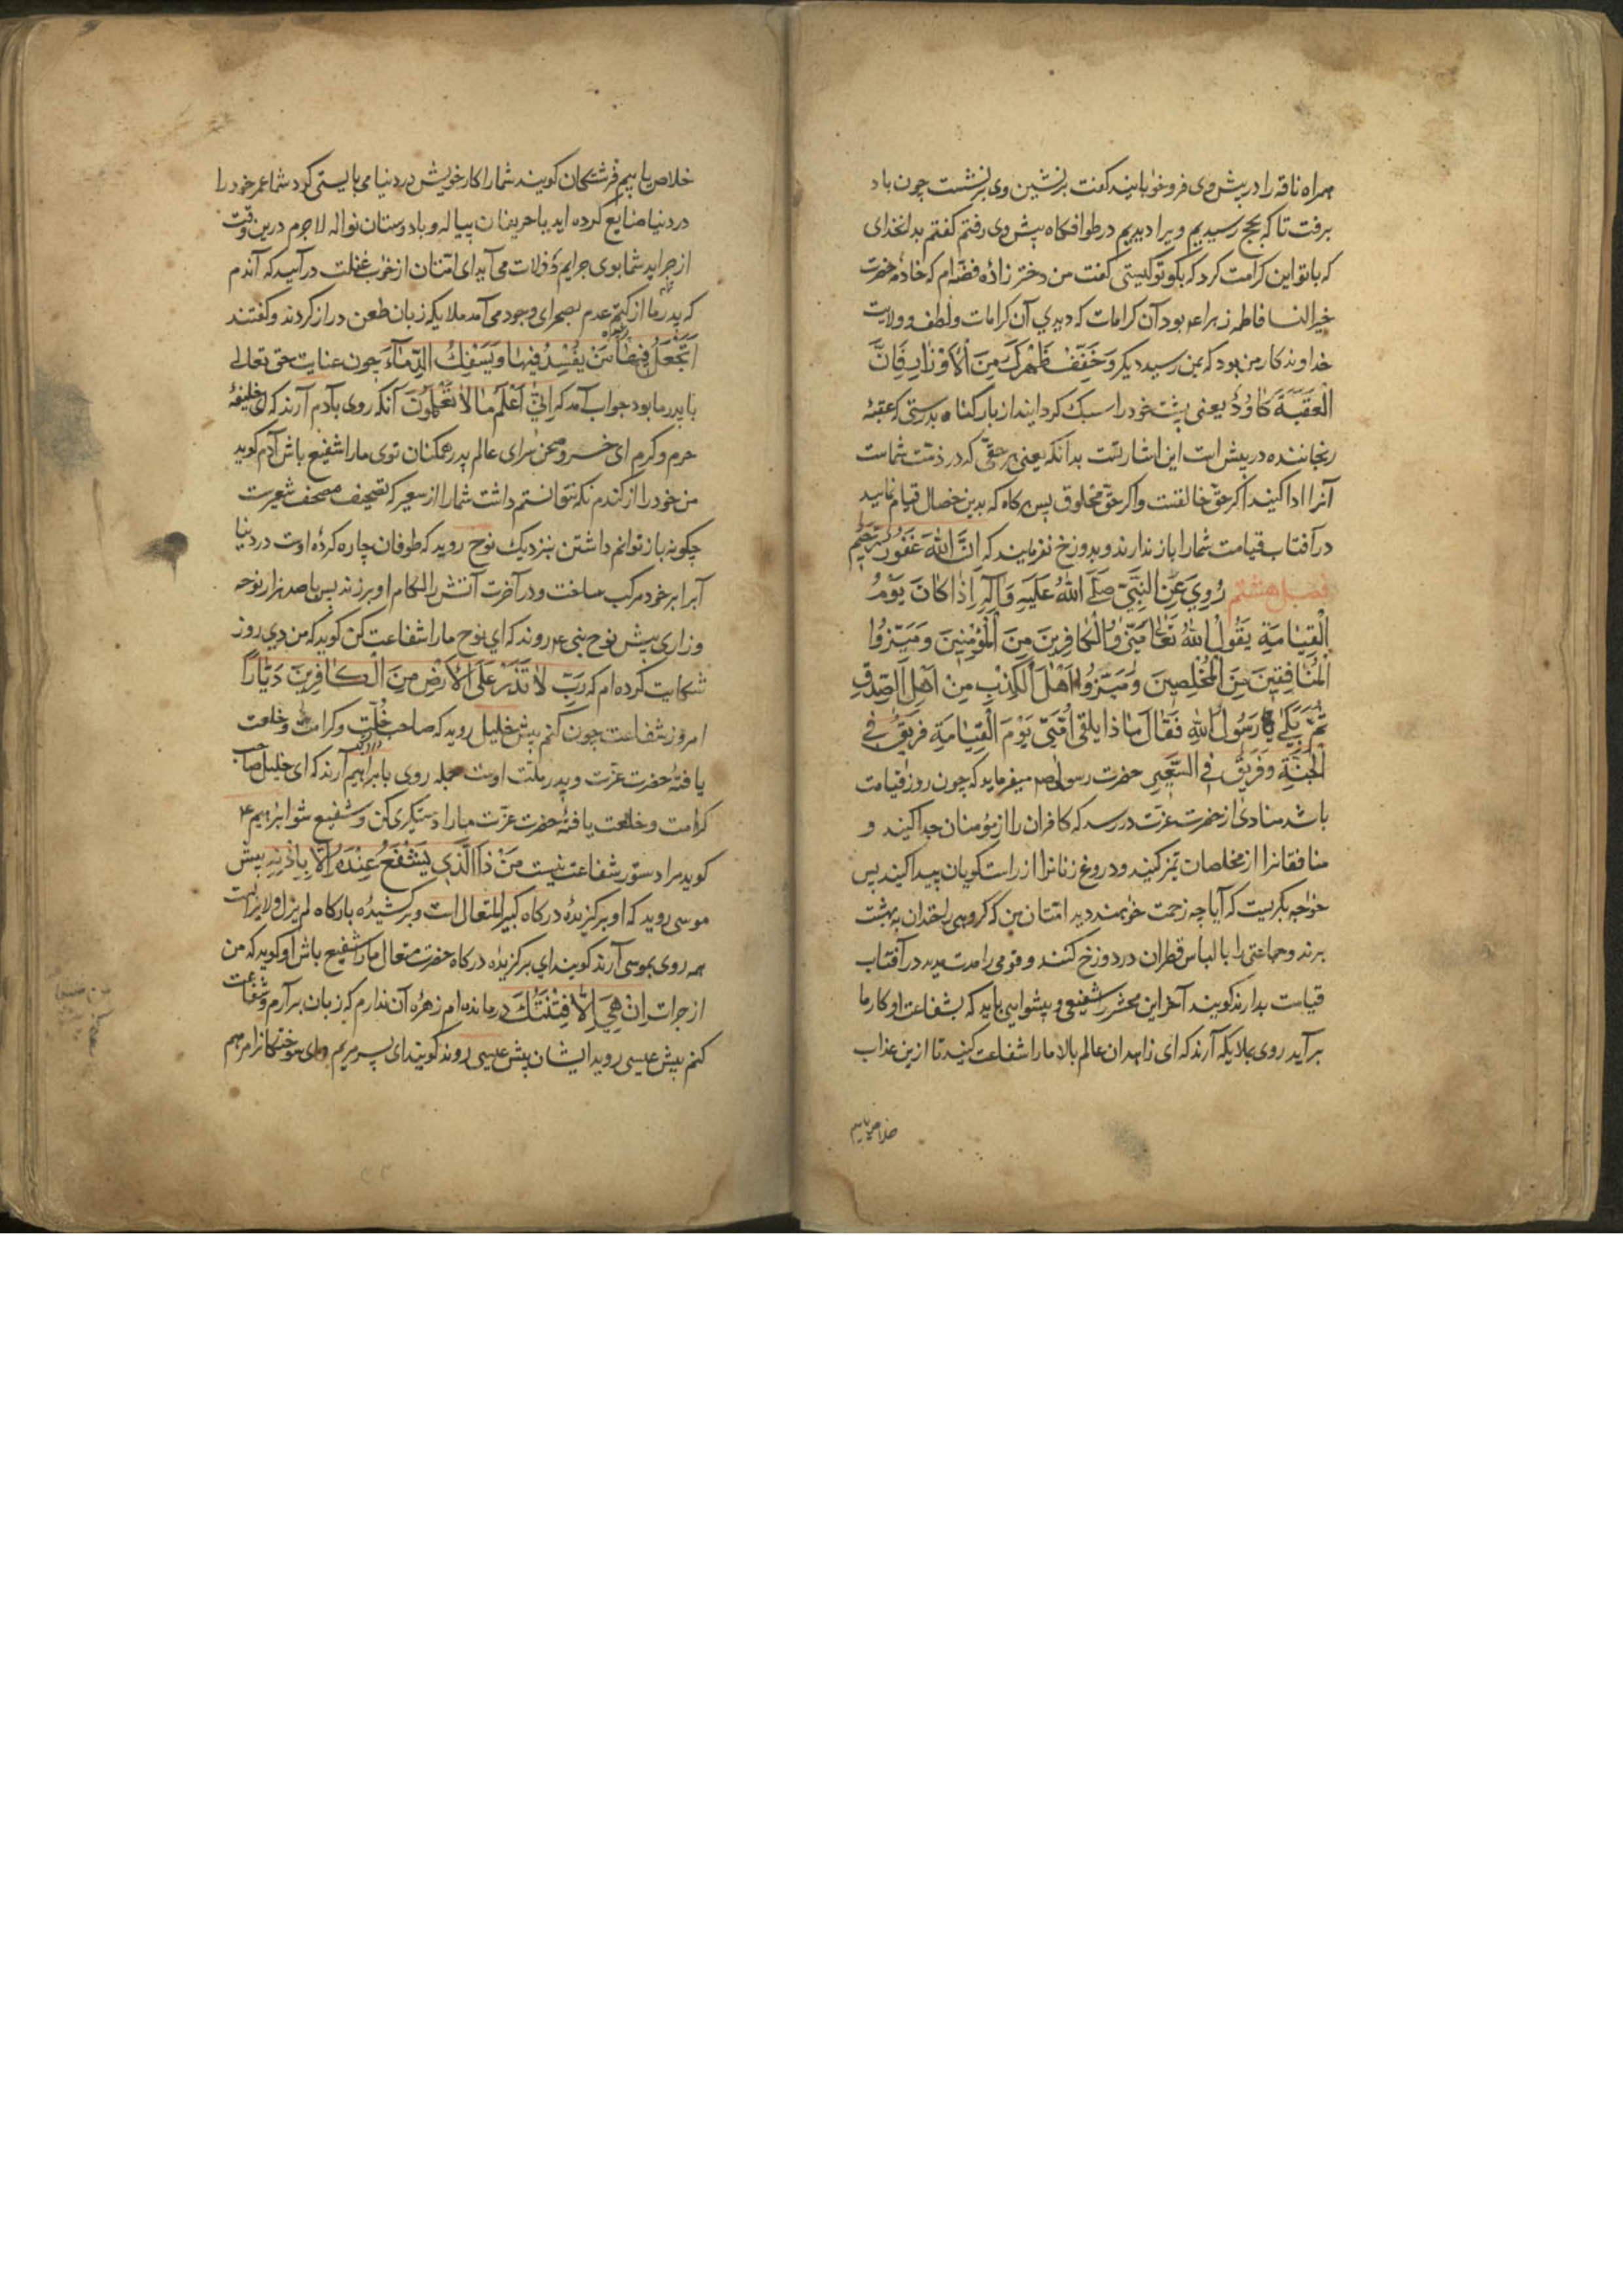 همراه ناقه را در پیش وی فروخوابانید کفت برنشین وی برنشست چون باد
برفت تا که بحج رسیدیم ویرا دیدیم در طوافکاه پیش وی رفتم کفتم بدانخدای
که با تو این کرامت کرد که بکو تو کیستی کفت من دختر زاده فضه ام که خادمه حضرت
خیر النسا فاطمه زهرا ع بود آن کرامات که دیدی آن کرامات و لطف و ولایت
خداوندکار من بود که بمن رسید دیکر وَخَفِّفْ ظَهْرَكَ مِنَ الْأَوْزَارِ فَاِنَّ
الْعَقَبَةَ كَاوُدٌ یعنی پشت خود را سبک کردانید از بار کناه بدرستی که عقبهٔ
رنجاننده در پیش است این اشارتست بدانکه یعنی هر حقی که در ذمت شماست
آنرا ادا کنید اکر حق خالقست و اکر حق مخلوق پس هر کاه که بدین خصال قیام نمایید
در آفتاب قیامت شما را باز ندارند و بدوزخ نفرمایند که اِنَّ اللهَ غَفُورٌ رَحِیمٌ
فصل هشتم رُوِيَ عَنِ النَّبِيِّ صَلَّى اللهُ عَلَيْهِ وَآلِهِ اِذَا كَانَ يَوْمُ
الْقِيَامَةِ يَقُولُ اللهُ تَعَالَى مَيِّزُوا الْكَافِرِينَ مِنَ الْمُؤْمِنِينَ وَمَيِّزُوا
الْمُنَافِقِينَ مِنَ الْمُخْلِصِينَ وَمَيِّزُوا اَهْلَ الْكِذْبِ مِنْ اَهْلِ الصِّدْقِ
ثُمَّ بَكَى رَسُولُ اللهِ فَقَالَ مَاذَا يَلْقَى اُمَّتِي يَوْمَ الْقِيَامَةِ فَرِيقٌ فِي
الْجَنَّةِ وَفَرِيقٌ فِي السَّعِيرِ حضرت رسول ص میفرماید که چون روز قیامت
باشد منادی از حضرت عزت در رسد که کافران را از مؤمنان جدا کنید و
منافقانرا از مخلصان تمیز کنید و دروغ زنانرا از راست کویان پیدا کنید پس
خواجه بکریست که آیا چه زحمت خواهند دید امتان من که کروهی را خندان به بهشت
برند و جماعتی را با لباس قطران در دوزخ کنند و قومی را مدت مدید در آفتاب
قیامت بدارند کویند آخر این محشر را شفیعی و پیشوایی باید که بشفاعت او کار ما
برآید روی بملایکه آرند که ای زاهدان عالم بالا ما را شفاعت کنید تا ازین عذاب
خلاص یابیم
خلاص یابیم فرشتکان کویند شما را کار خویش در دنیا می بایستی کرد شما عمر خود را
در دنیا ضایع کرده اید با حریفان پیاله و با دوستان نواله لاجرم درین وقت
از جراید شما بوی جرایم و زلات می آید ای امتان از خواب غفلت درآیید که آندم
که پدر ما از کتم عدم بصحرای وجود می آمد ملایکه زبان طعن دراز کردند و کفتند
اَتَجْعَلُ فِيهَا مَنْ يُفْسِدُ فِيهَا وَيَسْفِكُ الدِّمَاءَ چون عنایت حق تعالی
با پدر ما بود جواب آمد که اِنِّي اَعْلَمُ مَا لَا تَعْلَمُونَ آنکه روی بآدم آرند که ای خلیفه
حرم و کرم ای خسرو صحن سرای عالم پدر همکنان توی ما را شفیع باش آدم کوید
من خود را از کندم نکه نتوانستم داشت شما را از سعیر که تصحیف مصحف شعیرست
چکونه باز توانم داشتن بنزدیک نوح روید که طوفان چاره کرده اوست در دنیا
آبرا بر خود مرکب ساخت و در آخرت آتش را لکام او برزند پس با صد هزار نوحه
و زاری پیش نوح نبی ع روند که ای نوح ما را شفاعت کن کوید که من دی روز
شکایت کرده ام که رَبِّ لَا تَذَرْ عَلَى الْاَرْضِ مِنَ الْكَافِرِينَ دَيَّارًا
امروز شفاعت چون کنم پیش خلیل روید که صاحب خُلّت و کرامت و خلعت
یافتهٔ حضرت عزت و پدر ملت اوست جمله روی بابراهیم آرند که ای خلیل صاحب
کرامت و خلعت یافتهٔ حضرت عزت ما را دستکیری کن و شفیع شو ابراهیم ع
کوید مرا دستور شفاعت نیست مَنْ ذَا الَّذِي يَشْفَعُ عِنْدَهُ اِلَّا بِاِذْنِهِ پیش
موسی روید که او برکزیدهٔ درکاه کبیر المتعال است و برکشیده بارکاه لم یزل و لا یزالست
همه روی بموسی آرند کویند ای برکزیده درکاه حضرت متعال ما را شفیع باش او کوید که من
از جرات اِنْ هِيَ اِلَّا فِتْنَتُكَ درمانده ام زهره آن ندارم که زبان برآرم و شفاعت
کنم پیش عیسی روید ایشان پیش عیسی روند کویند ای پسر مریم و ای سوختکانرا مرهم